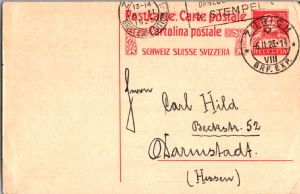 13-14
STEMPEL
Postkarte. Carte postale
Cartolina postale
SCHWEIZ SUISSE SVIZZERA
ZÜRICH
-6.II.23.-11
VIII
BRF. EXP.
Herrn
Carl Hild
Beckstr. 52
Darmstadt
(Hessen)